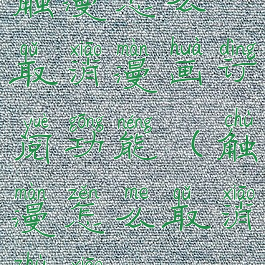 触漫怎么
qǔ xiāo màn huà dìng
取消漫画订
yuè gōng néng chù
阅功能（触
màn zěn me qǔ xiāo
漫怎么取消